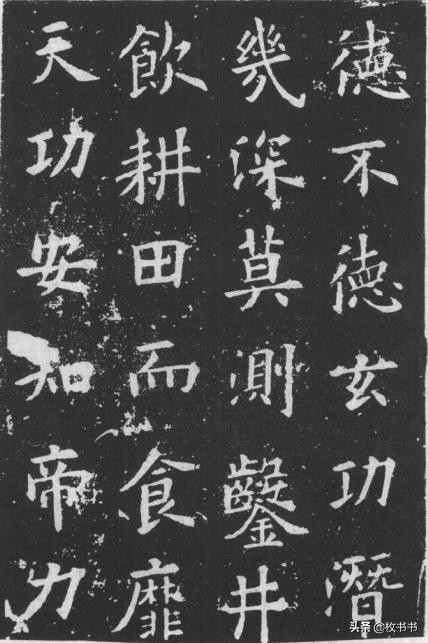 德不德玄功潛
幾深莫測鑿井
飲耕田而食靡
天功安知帝力
头条 @枚书书